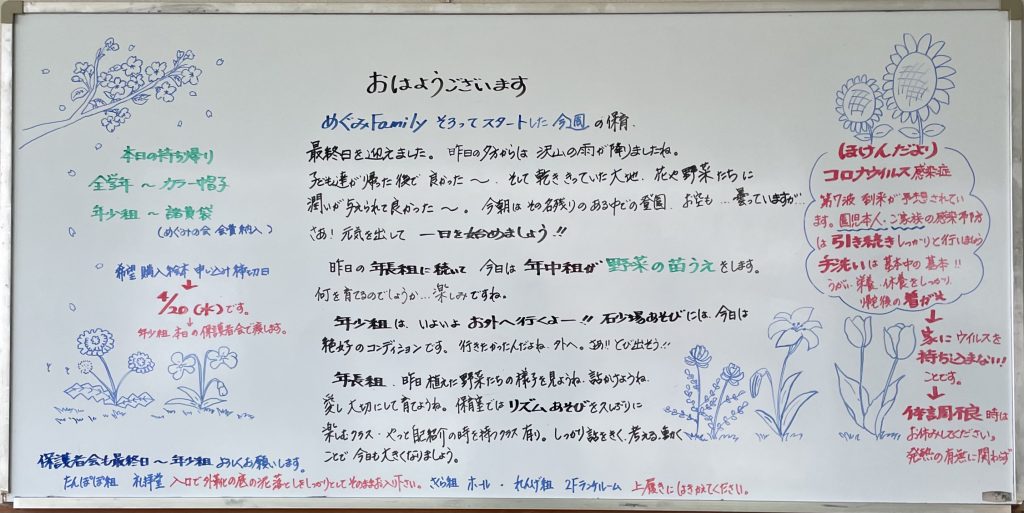 おはようございます
めぐみFamily そろってスタートした今週の保育.
最終日を迎えました。昨日の夕方からは 沢山の雨が降りましたね。
子ども達が帰った後で良かった〜. そして乾ききっていた大地. 花や野菜たちに
潤いが与えられて良かった〜。今朝はその名残りのある中での登園. お空も…曇っていますが…
さあ!元気を出して 一日を始めましょう!!
昨日の年長組に続いて 今日は 年中組が 野菜の苗うえをします。
何を育てるのでしょうか…楽しみですね。
年少組は、いよいよ お外へ行くよー!! 砂場あそびには、今日は
絶好のコンディションです。行きたかったんだよね. 外へ。さあ!!とび出そう!!
年長組、昨日植えた野菜たちの様子を見ようね. 話かけようね.
愛し大切にして育てようね。保育室ではリズムあそびを久しぶりに
楽しむクラス・やっと自己紹介の時を持つクラス有り。しっかり話をきく、考える、動く
ことで今日も大きくなりましょう。
本日の持ち帰り
全学年 〜 カラー帽子
年少組 〜 諸費袋
(めぐみの会 会費納入)
希望購入絵本 申し込み締切日
4/20(水)です。
年少組 本日の保護者会で渡します。
ほけんだより
コロナウイルス感染症
第7波 到来が予想されてい
ます。園児本人・ご家族の感染予防
は 引き続きしっかりと行いましょう
手洗いは基本中の基本!!
うがい・栄養・休養をしっかり.
帰宅後の着がえ
家にウイルスを
持ち込まない!
ことです。
体調不良時は
お休みしてください。
発熱の有無に関わず
保護者会も最終日〜年少組 よろしくお願いします。
たんぽぽ組 礼拝堂 入口で外靴の底の泥落としをしっかりとしてそのままお入り下さい。さくら組 ホール・れんげ組 2Fランチルーム 上履きにはきかえてください。